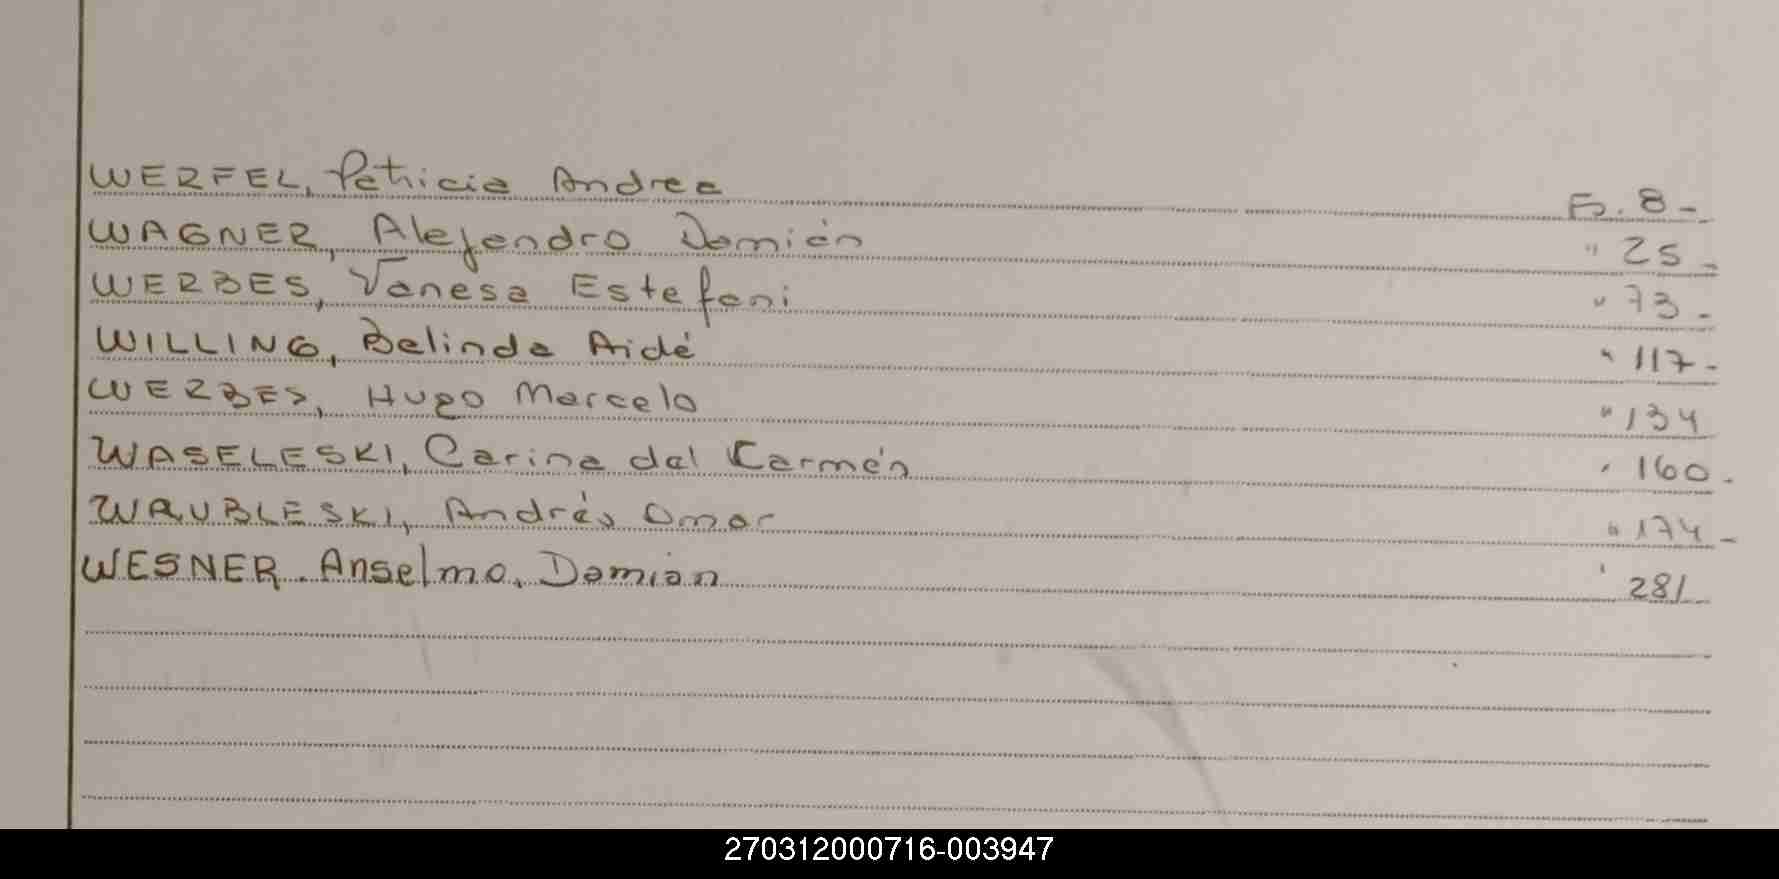 WERFEL, Patricia Andrea Fs. 8-
WAGNER, Alejandro Damián " 25-
WERBES, Vanesa Estefani " 73-
WILLING, Belinda Aidé " 117-
WERBES, Hugo Marcelo " 134
WASELESKI, Carina del Carmén " 160-
WRUBLESKI, Andrés Omar " 174-
WESNER. Anselmo, Damian ' 281
270312000716-003947